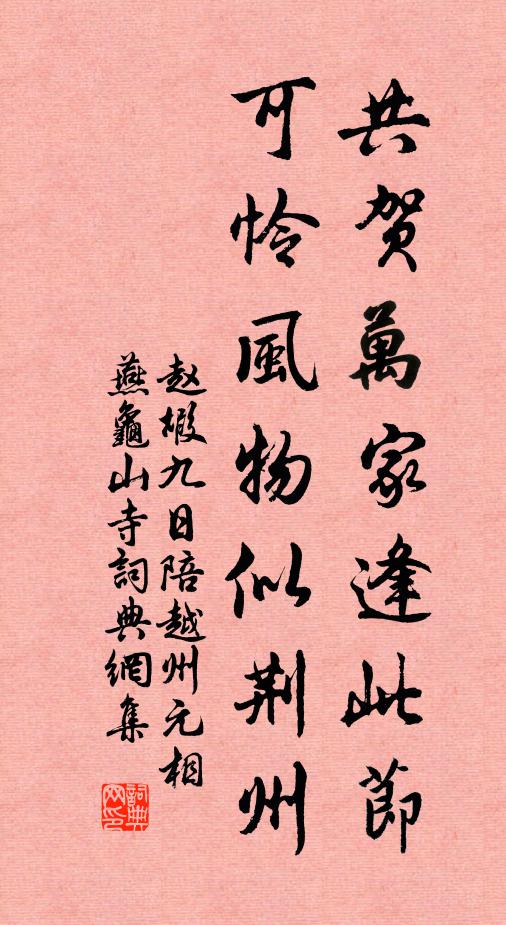 共贺萬家逢此節
可怜風物似荆州
赵嘏九日陪越州元相
燕龜山寺詞典網集
詞典
网印